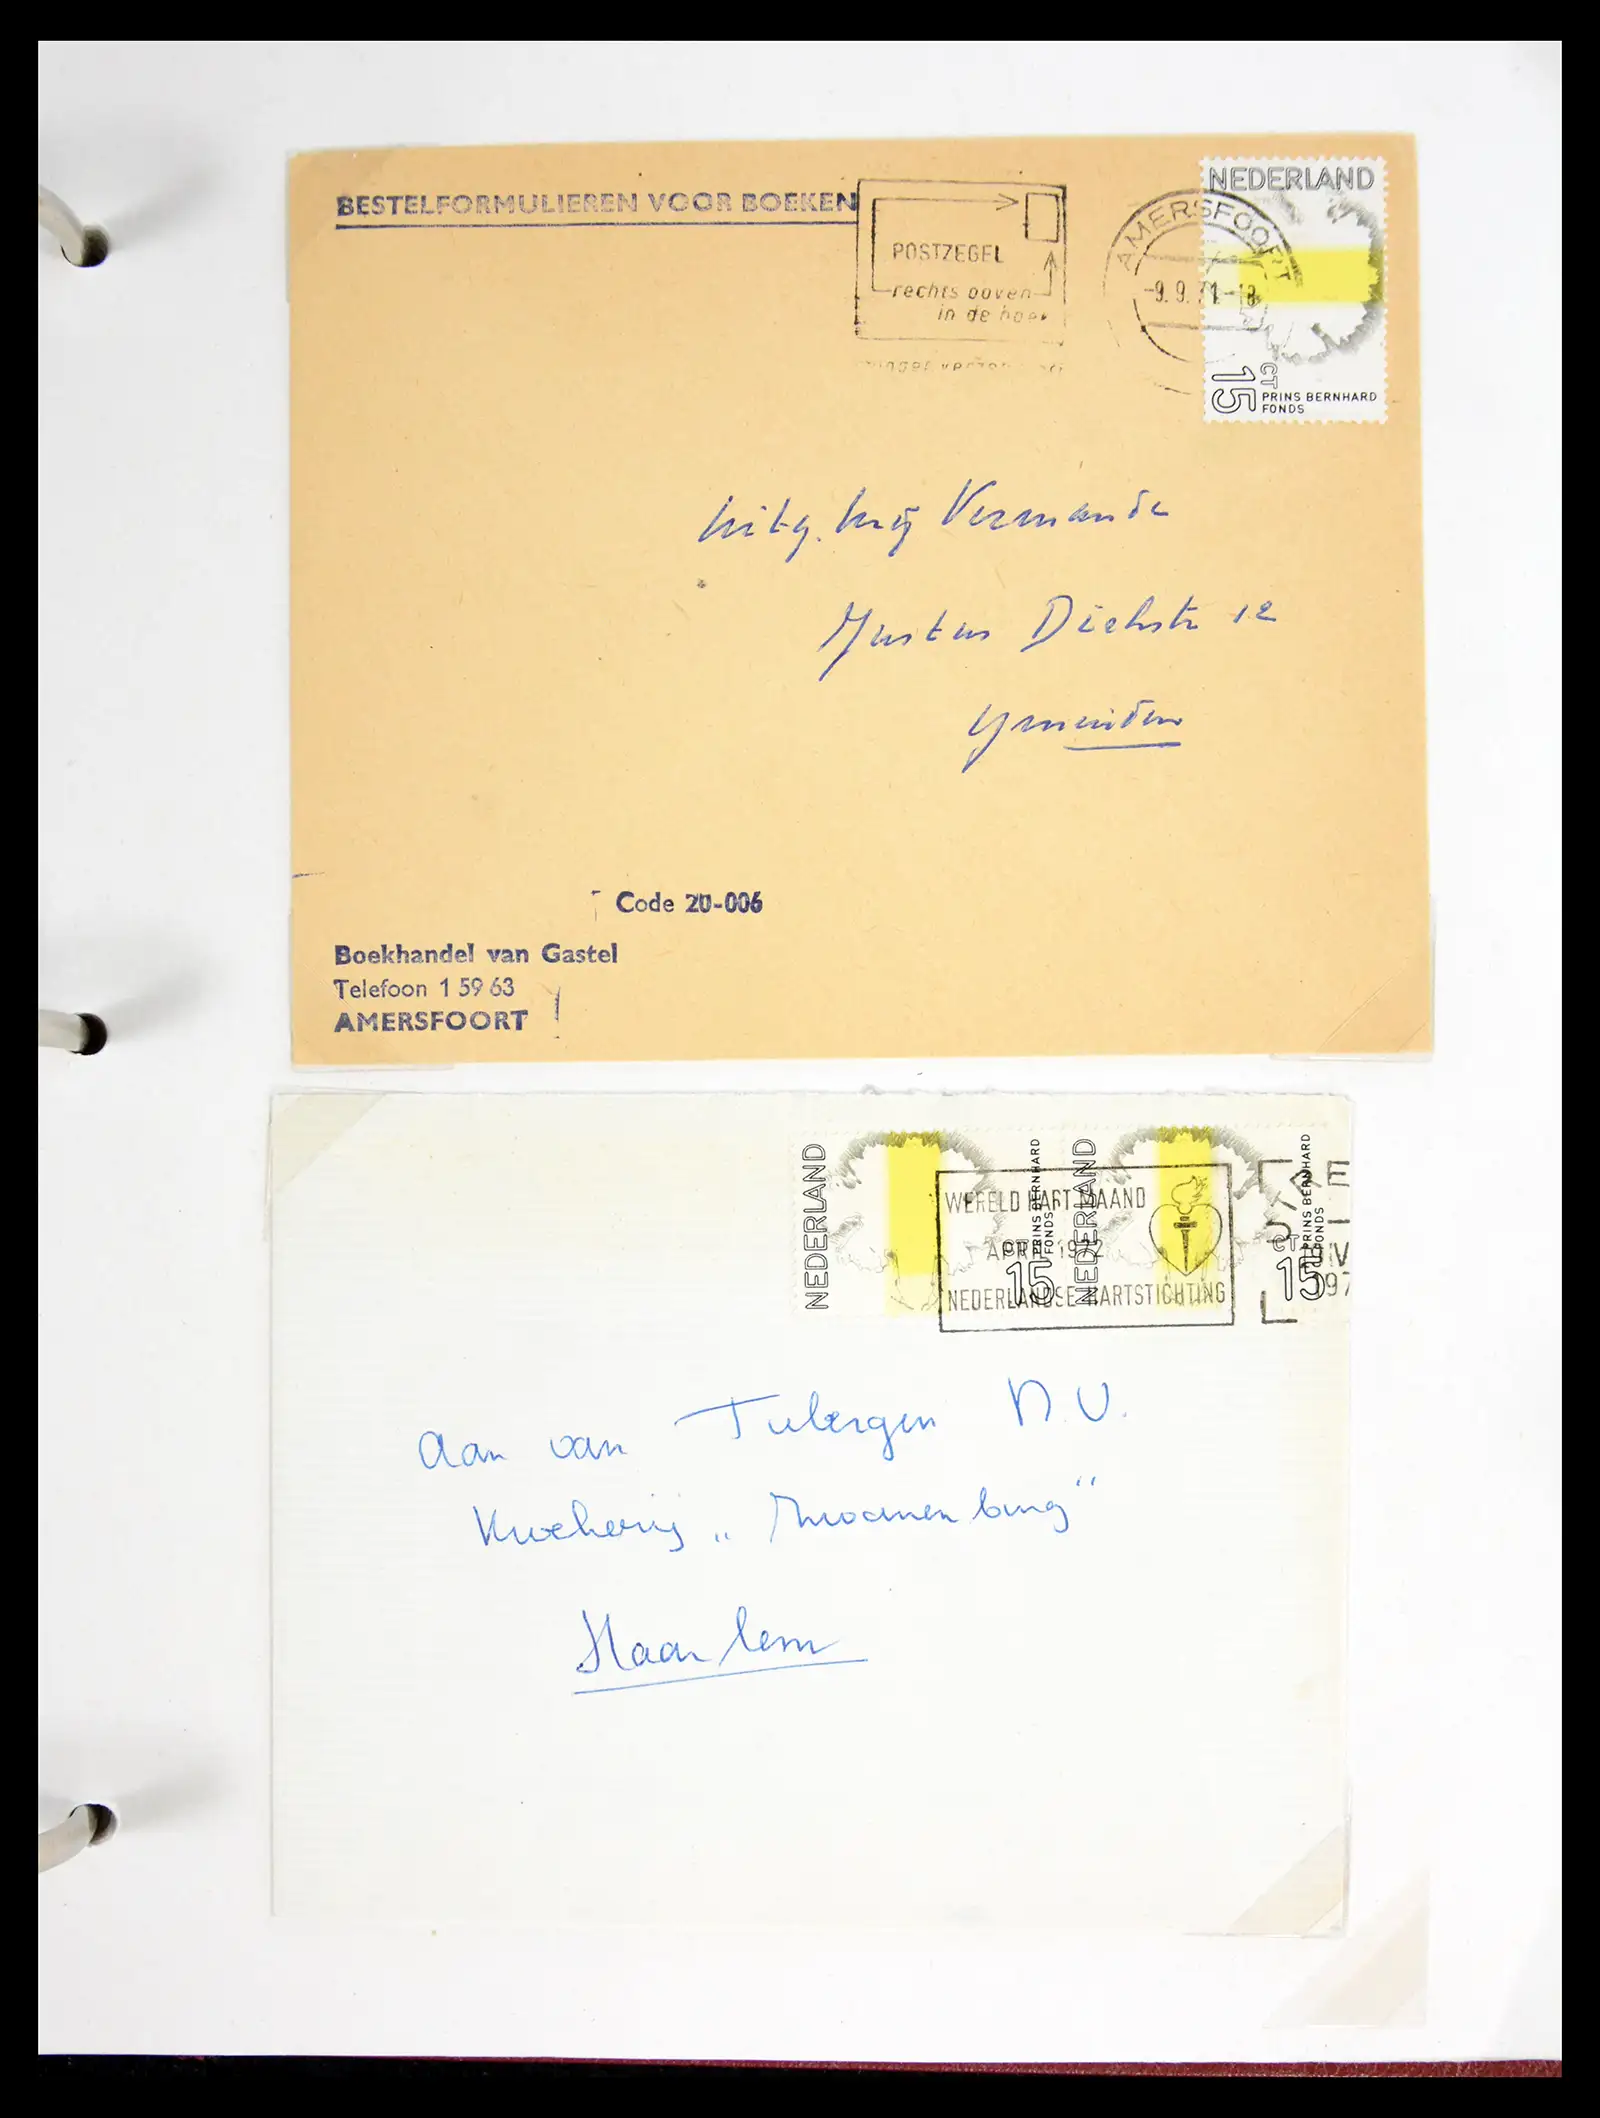 BESTELFORMULIEREN VOOR BOEKEN
POSTZEGEL
rechts boven
in de hoek
AMERSFOORT
-9.9.71-18
NEDERLAND
15 CT
PRINS BERNHARD
FONDS
Uitg. Mij Vermande
Justus Diehstr 12
Ymuiden
Code 20-006
Boekhandel van Gastel
Telefoon 1 59 63
AMERSFOORT
NEDERLAND
15 CT
PRINS BERNHARD
FONDS
NEDERLAND
15 CT
PRINS BERNHARD
FONDS
WERELD HART MAAND
APRIL 1972
NEDERLANDSE HARTSTICHTING
Aan van Tubergen N.V.
Kwekerij „
Haarlem